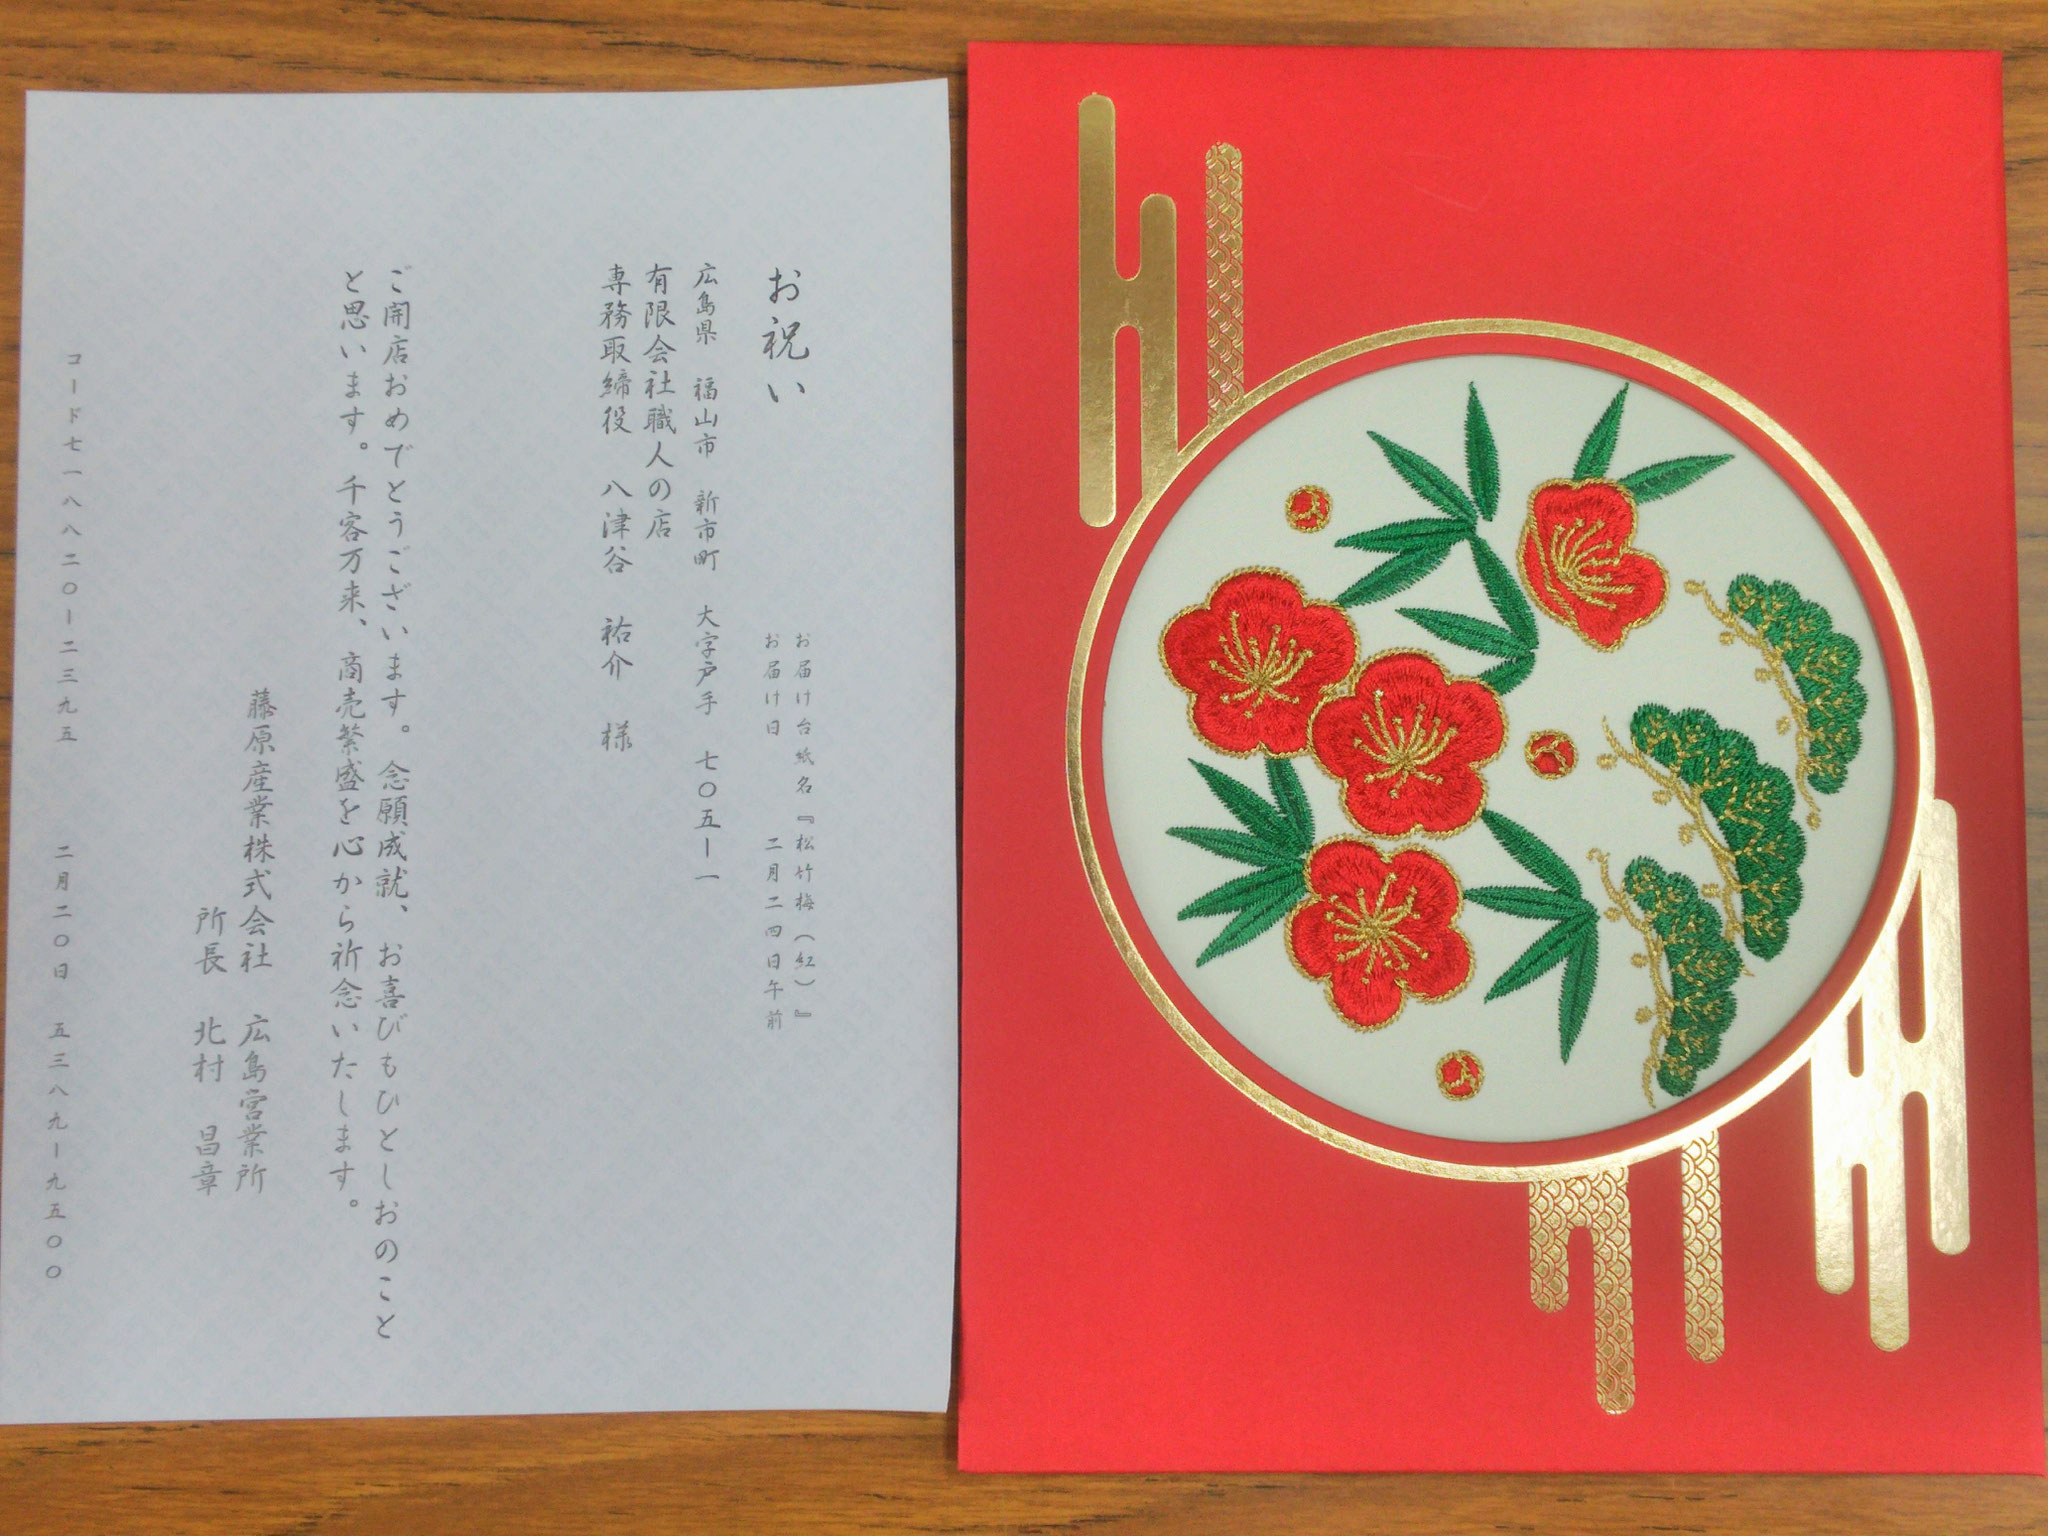 お祝い
お届け台紙名『松竹梅（紅）』
お届け日　二月二四日午前
広島県　福山市　新市町　大字戸手　七〇五ー一
有限会社職人の店
専務取締役　八津谷　祐介　様
ご開店おめでとうございます。念願成就、お喜びもひとしおのこと
と思います。千客万来、商売繁盛を心から祈念いたします。
藤原産業株式会社　広島営業所
所長　北村　昌章
コード七一八八二〇ー二三九五　二月二〇日　五三八九ー九五〇〇